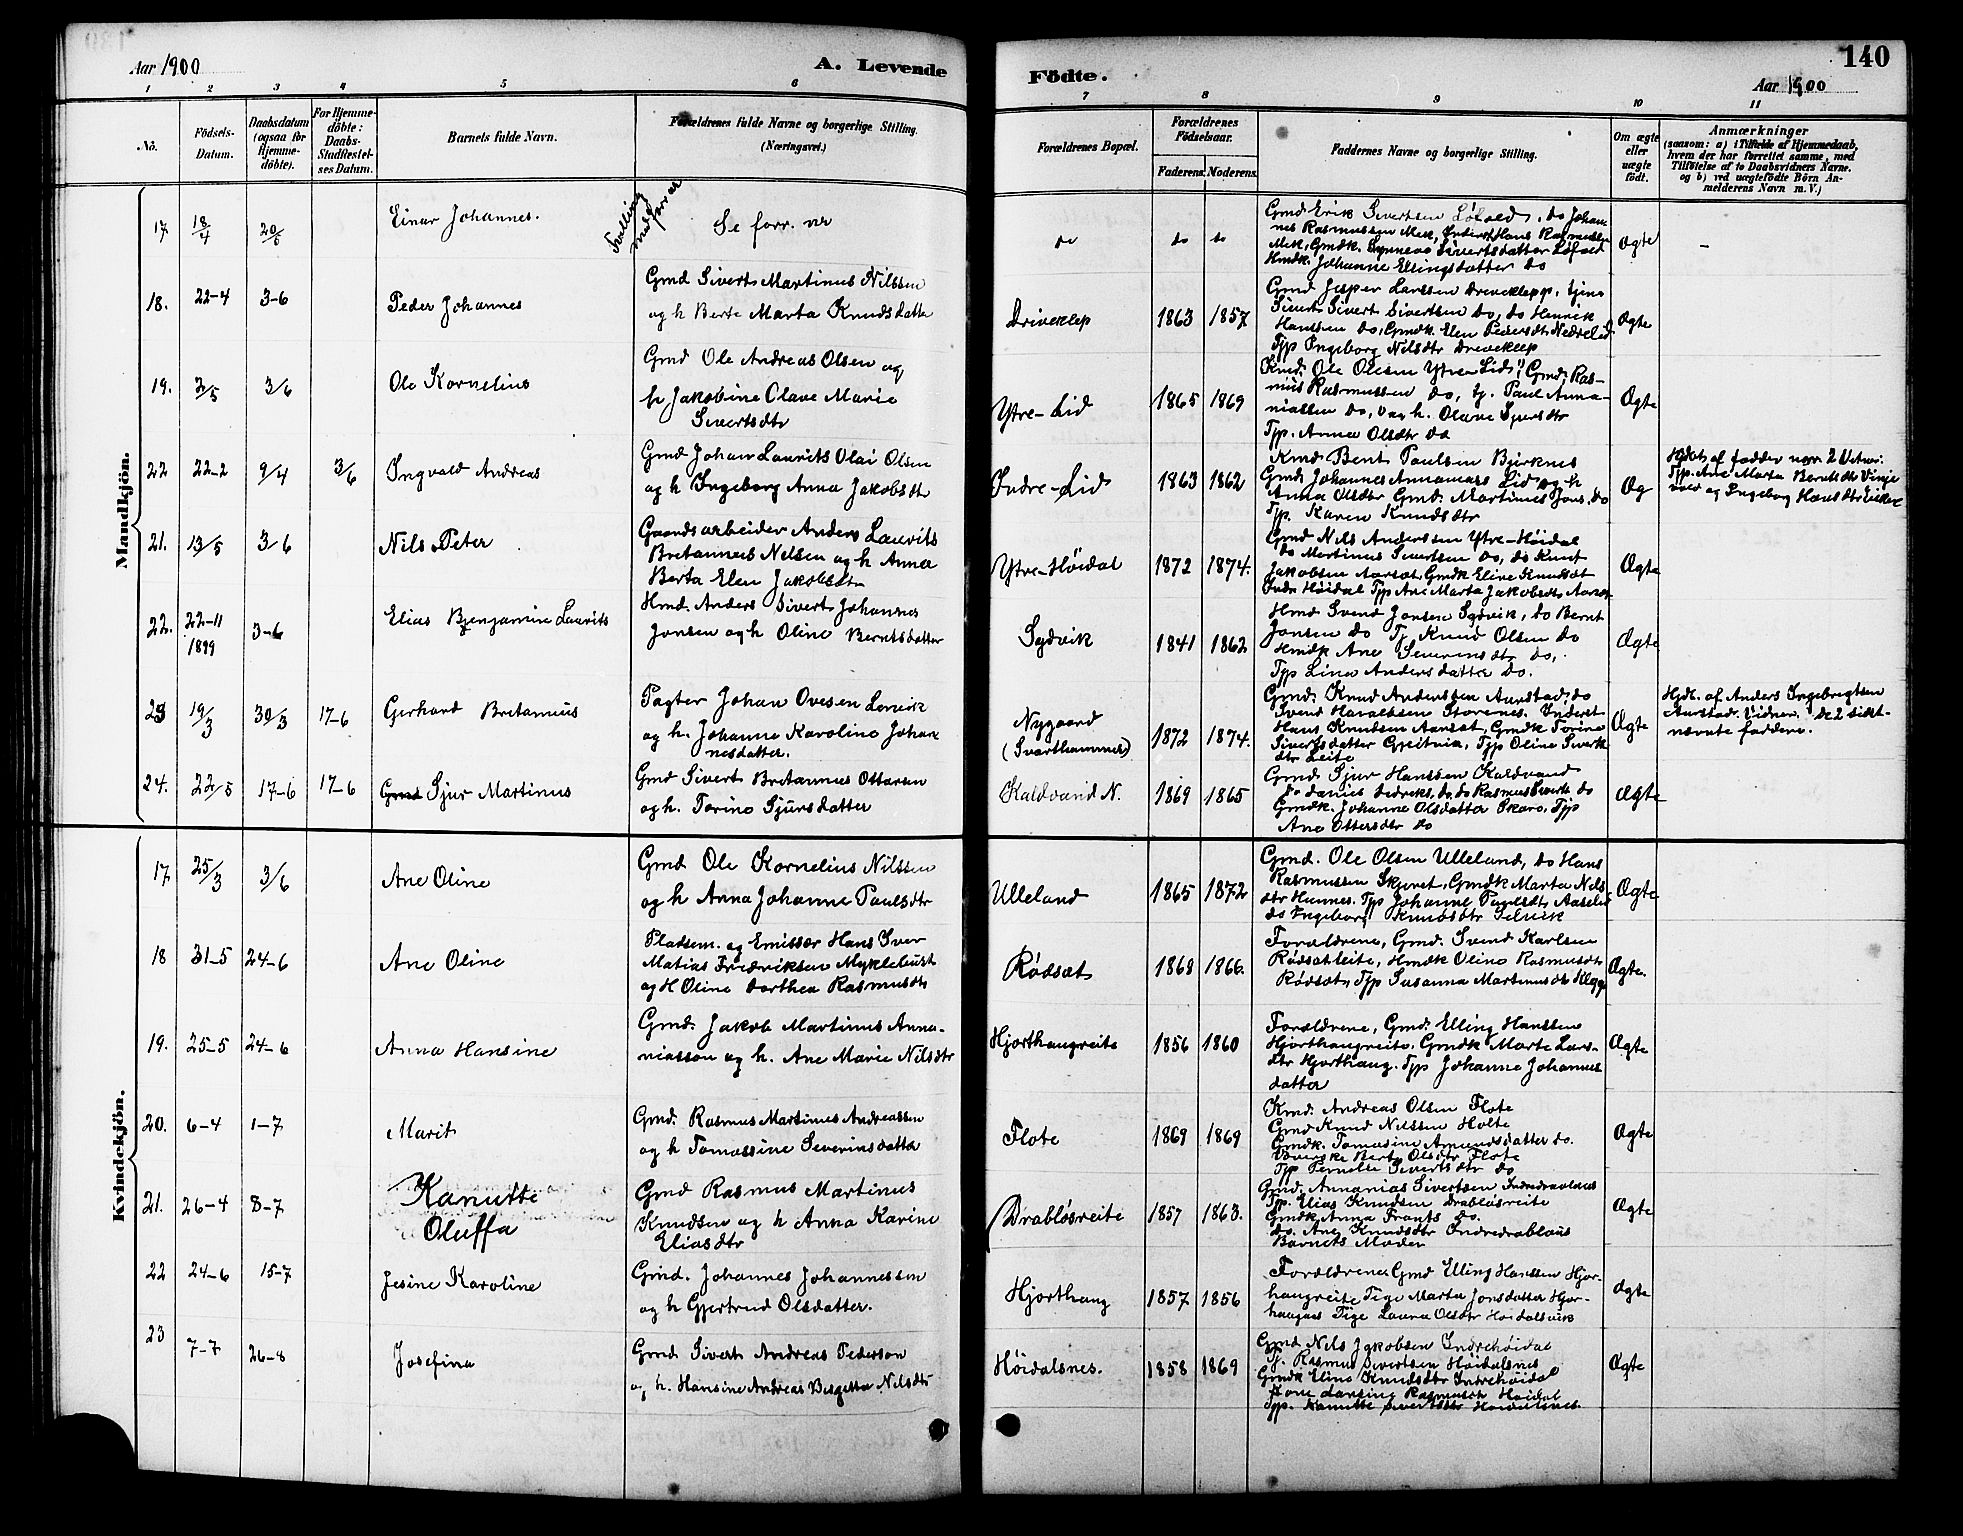 Aar 1900
A. Levende
Födte.
140
Aar 1900
1 2 3 4 5 6 7 8 9 10 11
No.
Födsels-Datum.
Daabsdatum (ogsaa for Hjemme-döbte).
For Hjemme-döbte: Daabs-Stadfæstel-ses Datum.
Barnets fulde Navn.
Forældrenes fulde Navne og borgerlige Stilling.
(Næringsvei.)
Forældrenes Bopæl.
Forældrenes Födselsaar.
Faderens. Moderens.
Faddernes Navne og borgerlige Stilling.
Om ægte eller uægte födt.
Anmærkninger
(saasom: a) i Tilfælde af Hjemmedaab,
hvem der har forrettet samme, med
Tilföielse af to Daabsvidners Navne.
og b) ved uægtefödte Börn An-
melderens Navn m. V.)
Mandkjön.
17 18/4 20/5 Einar Johannes.
Tvilling med forr nr
Se forr. nr
do do do
Gmd Erik Sivertsen Löfold, do Johan-
nes Rasmussen Mek, Inderst Hans Rasmussen
Mek, Gmdk. Synneve Sivertsdatter Löfold
Hmdk. Johanne Ellingsdatter do
Ægte
–
18. 22-4 3-6 Peder Johannes
Gmd Sivert Martinus Nilssen
og h Berte Marta Knudsdatter
Driveklep 1863 1857
Gmd Jesper Larssen Dreveklepp, tjener
Sivert Sivertsen do, do Henrik
Hanssen do, Gmdk. Elen Pedersdtr Nedrelid
Tjp Ingeborg Nilsdtr Dreveklep
Ægte
19. 2/5 3/6 Ole Kornelius
Gmd Ole Andreas Olsen og
h Jakobine Olave Marie
Sivertsdtr
Ytre-Lid 1865 1869
Kmd. Ole Olesen Ytre Lid, Gmd. Ras-
mus Rasmussen do, tj. Paul Anna-
niassen do,
Tjp. Anna Olsdtr do
Ægte
22 22-2 9/4 3/6 Ingvald Andreas
Gmd Johan Laurits Olai Olsen
og h Ingeborg Anna Jakobsdtr
Indre-Lid 1863 1862
Kmd Bent Paulsen Bjørknes
Gmd. Johannes Annanias Lid og h
Anna Olsdtr Gmd. Martinus Jons. do
Tjp. Karen Knudsdtr
Æg
Hjdöbt af fader
Tjp. Ane Marta Berntsdtr Vinje
vold og Ingeborg Hansdtr
21. 13/5 3-6 Nils Peter
Gaardsarbeider Anders Laurits
Bretanneus Nelsen og h Anna
Berta Elen Jakobsdtr
Ytre-Höidal 1872 1874.
Gmd Nils Anderssen Ytre-Höidal
do Martinus Sivertsen do, do Knut
Jakobsen Aarsæt, Gmdk Eline Knudsdtr
Indr Höidal Tjp Ane Marta Jakobsdtr Aarsæt
Ægte
22. 22-11 1899 3-6 Elias Benjamine Laurits
Hmd. Anders Sivert Johannes
Jonsen og h Oline Berntsdatter
Sydvik 1841 1862
Hmd Svend Jonsen Sydvik, do Bernt
Jonsen do Tj Knud Olsen do
Hmdk Ane Severinsdtr do,
Tjp Lina Andersdatter do.
Ægte
23 19/3 30/3 17-6 Gerhard Bretanius
Pagter Johan Ovesen Lervik
og h. Johanne Karoline Johan
nesdatter.
Nygaard
(Svarthammer) 1872 1874.
Gmd. Knud Anderssen Aurstad, do
Svend Haraldsen Storenes. Inderst
Hans Knutsen Aarsæt, Gmdk Torine
Sivertsdatter Gjeitvia, Tjp Oline Sivert
dtr Leite
Ægte
Hjdt. af Anders Ingebregtsen
Aurstad. Vidner: de 2 sidst-
nævnte faddere.
24. 22/5 17-6 17-6 Gmd Sjur Martinus
Gmd Sivert Bretannus Ottarsen
og h. Torine Sjursdatter
Kaldvand N. 1869 1865
Gmd Sjur Hanssen Kaldvand
do Danies Dedreks. do, do Rasmus Sivert. do
Gmdk. Johanne Olsdatter Skare, Tjp
Ane Ottersdtr do
Ægte
Kvindekjön.
17 25/3 3/6 Ane Oline
Gmd Ole Kornelius Nilssen
og h Anna Johanne Paulsdtr
Ulleland 1865 1872
Gmd. Ole Olsen Ulleland, do Hans
Rasmussen Skjeret, Gmdk Marta Nils
dtr Hunnes. Tjp Johanne Paulsdtr
do Ingeborg Knudsdtr
Ægte
18 31-5 24-6 Ane Oline
Pladsem. og Emissær Hans Iver
Matias Fredriksen Myklebust
og H Oline Dorthea Rasmusdtr
Rödsæt 1868 1866.
Forældrene, Gmd. Svend Karlsen
Rödsætleite, Hmdk Oline Rasmusdtr
Rödsæt, Tjp Susanna Martinusdtr Klepp
Ægte.
19. 25-5 24-6 Anna Hansine
Gmd. Jakob Martinus Anna-
niassen og h. Ane Marie Nilsdtr
Hjorthaugreite 1856 1860
Forældrene, Gmd. Elling Hanssen
Hjorthaugreite. Gmdk Marte Lars-
dtr Hjorthaug. Tjp Johanne Johannes
datter
Ægte
20. 6-4 1-7 Marit
Gmd. Rasmus Martinus Andreassen
og h Tomassine Severinsdatter
Flote 1869 1869
Kmd. Andreas Olsen Flote
Gmd Knud Nilssen Holte
Gmdk. Tomasine Amundsdatter do.
Berte Olsdtr Flote
Tjp Pernille Sivertsdtr do
Ægte
21. 26-4 8-7 Kanutte
Oluffa
Gmd Rasmus Martinus
Knudsen og h Anna Karine
Eliasdtr
Drablösreite 1857 1863.
Gmd. Annanias Sivertsen Indredrablaus
Tp. Elias Knudsen Drablösreite
Gmdk Anna Frants do.
do. Ane Knudsdtr Indredrablaus
Barnets Moder
Ægte
22 24-6 15-7 Jesine Karoline
Gmd. Johannes Johannessen
og h Gjertrud Olsdatter.
Hjorthaug 1857 1856
Forældrene Gmd Elling Hanssen Hjor-
haugreite Tige Marta Jonsdatter Hjor-
haugnes Tige Laura Olsdtr Höidalsvik
Ægte
23 7-7 26-8 Josefina
Gmd Sivert Andreas Pederson
og h. Hansine Andreas Birgitta Nilsdtr
Höidalsnes. 1858 1869
Gmd Nils Jakobsen Indrehöidal
Tj. Rasmus Sivertsen Höidalsnes
Gmdk Eline Knudsdtr Indrehöidal
Kone Lansine Rasmusdtr Höidal
Tjp. Kanutte Sivertsdtr Höidalsnes
Ægte